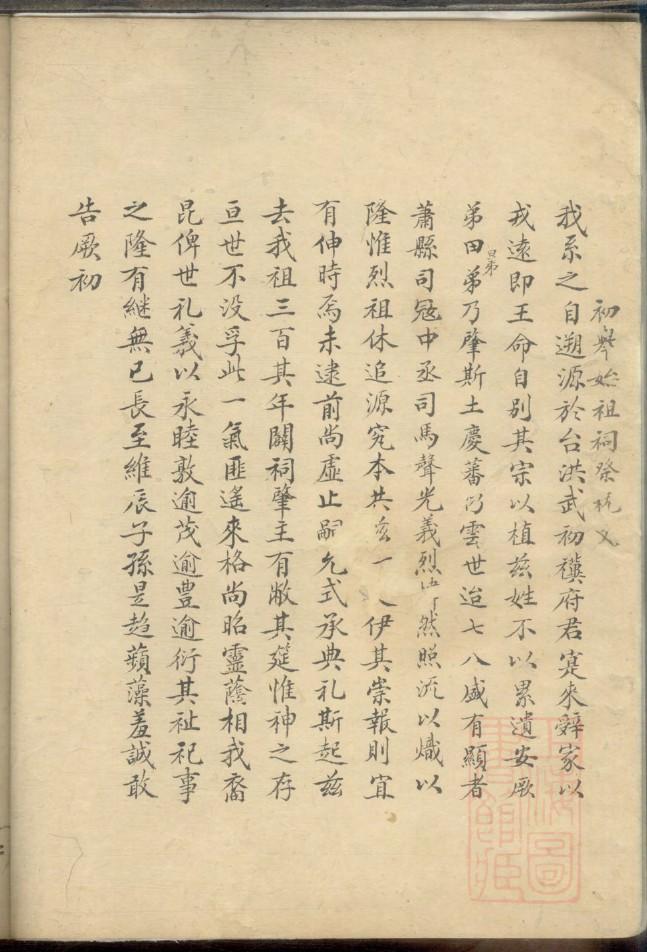 初舉始祖祠祭祝文
我系之自遡源於台洪武初禩府君寔來辭家以
戎遠即王命自别其宗以植兹姓不以累遺安厥
弟田弟乃肇斯土慶蕃乃雲世迨七八盛有顯者
旦弟
蕭縣司冦中丞司馬聲光義烈然照流以熾以
隆惟烈祖休追源究本共兹一人伊其崇報則宜
有伸時焉未逮前尚虛止嗣允式承典礼斯起兹
去我祖三百其年闢祠肇主有敞其筵惟神之存
亘世不没孚此一氣匪遙來格尚昭靈蔭相我裔
昆俾世礼義以永睦敦逾茂逾豊逾衍其祉祀事
之隆有継無已長至維辰子孫是趋蘋藻羞誠敢
告厥初